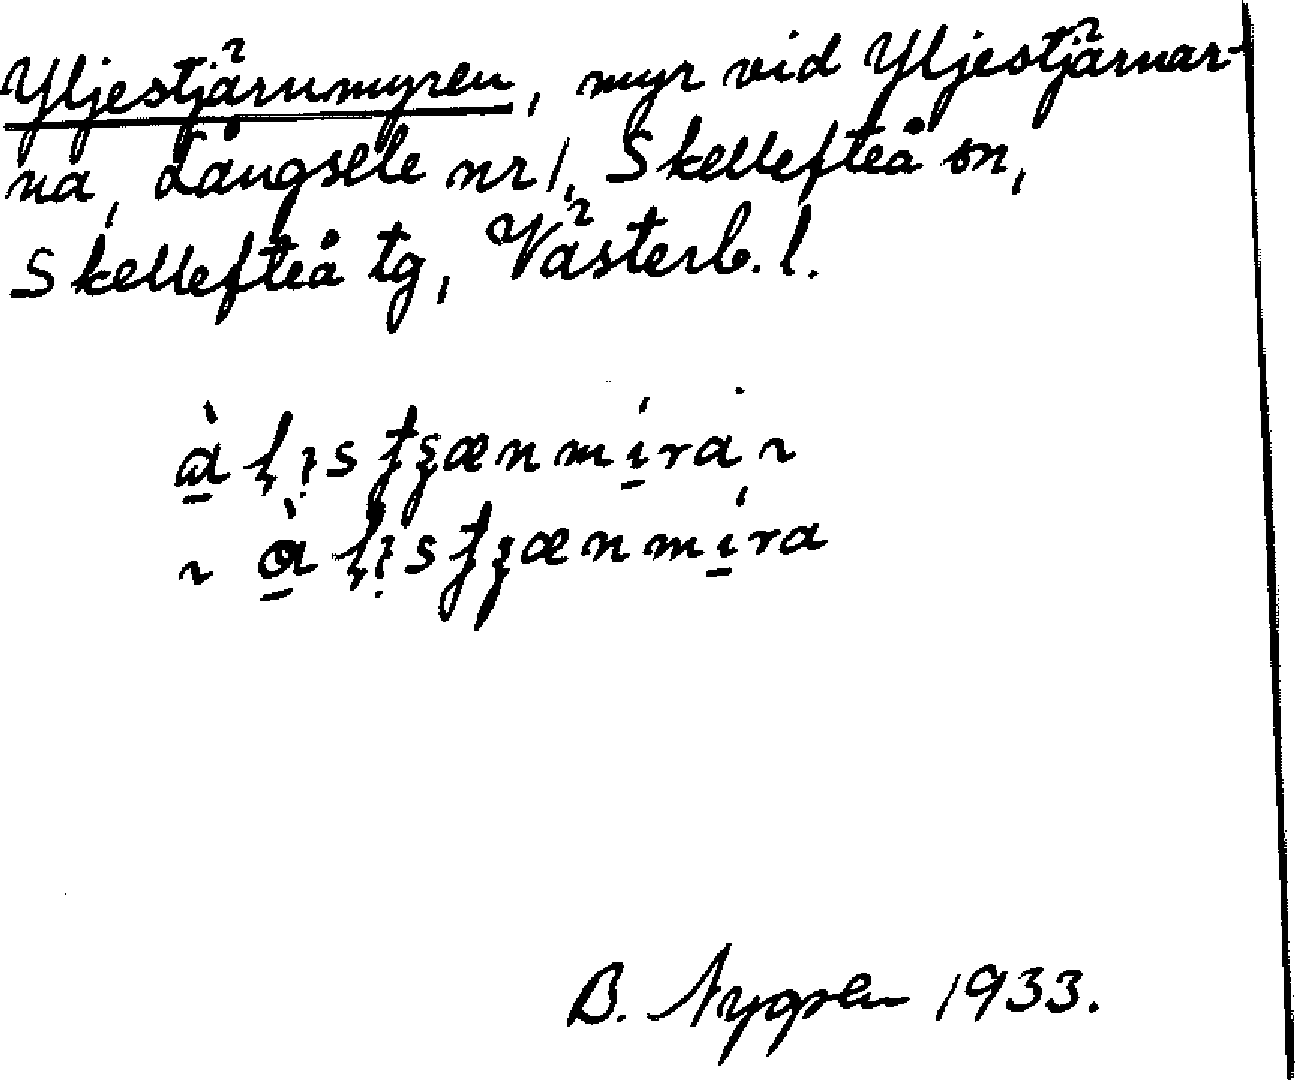 Yljestjärnmyren, myr vid Yljestjärnar-
na, Långsele nr 1, Skellefteå sn,
Skellefteå tg, Västerb. l.
B. Nygren 1933.